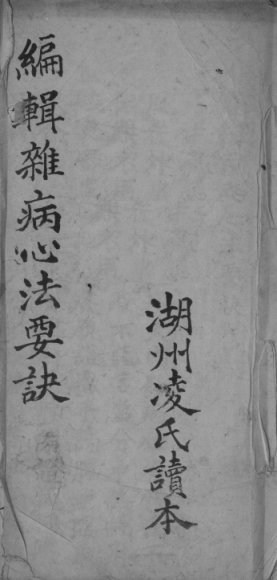 湖州凌氏讀本
編輯雜病心法要訣